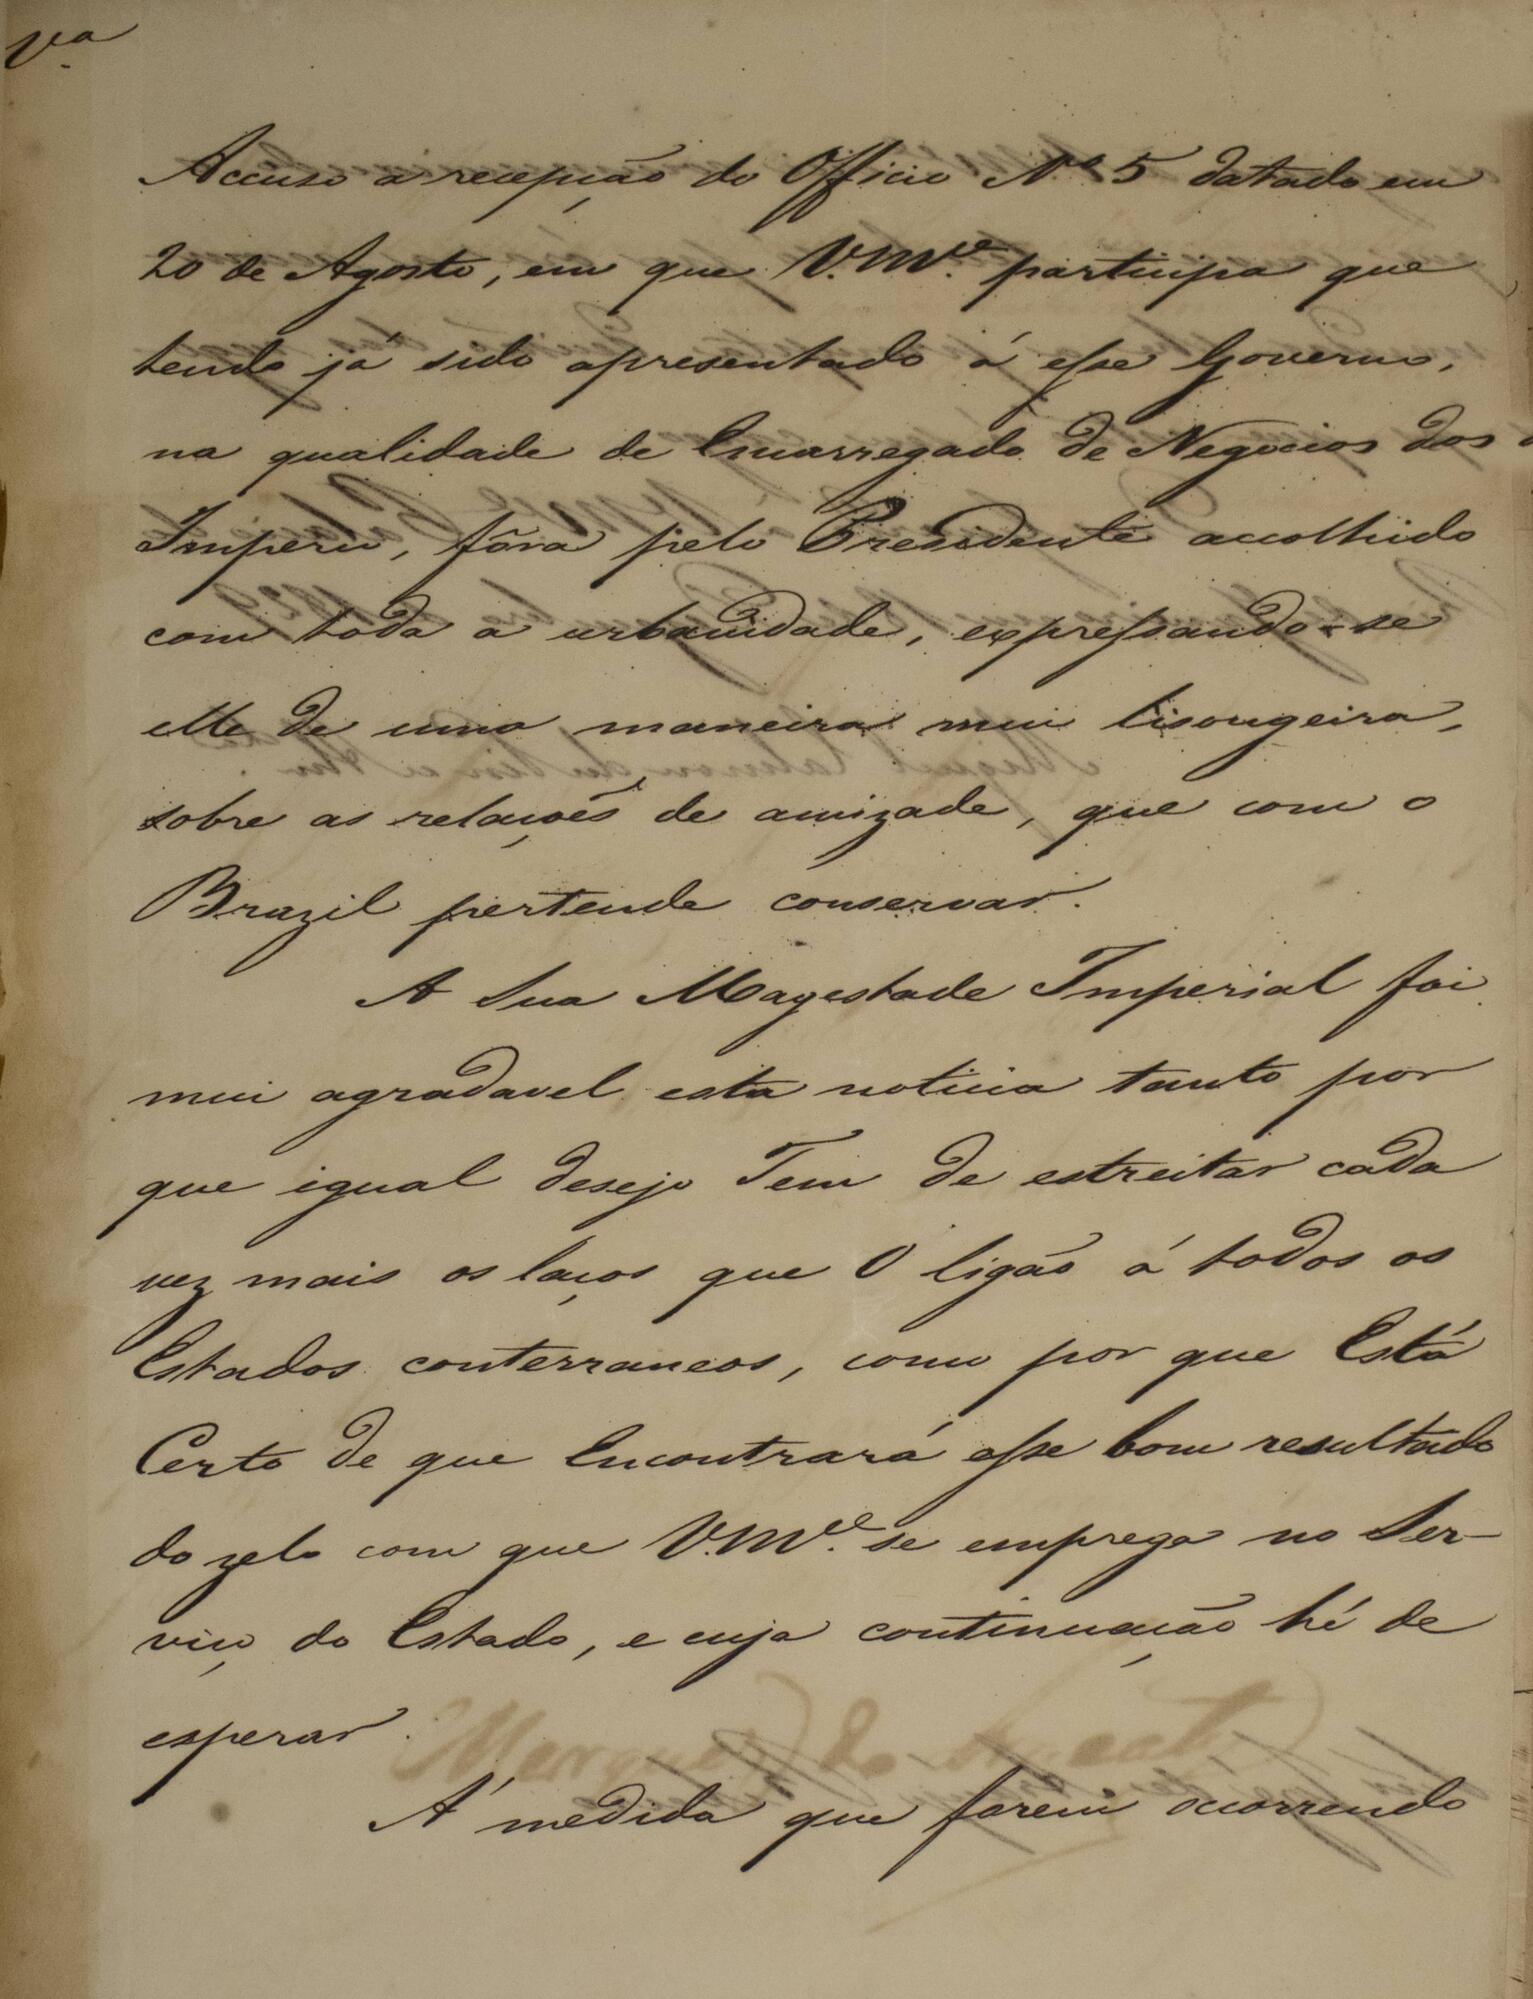 Vª
Accuso a recepção do Officio Nº 5 datado em
20 de Agosto, em que V.Mce. participa que
tendo já sido apresentado á esse Governo,
na qualidade de Encarregado de Negocios dos
Imperio, fôra pelo Presidente acolhido
com toda a urbanidade, expressando-se
elle de uma maneira mui lisongeira,
sobre as relações de amizade, que com o
Brazil pertende conservar.
A Sua Magestade Imperial foi
mui agradavel esta noticia tanto por
que igual desejo Tem de estreitar cada
vez mais os laços que O ligão á todos os
Estados conterraneos, como por que Está
Certo de que Encontrará esse bom resultado
do zelo com que V.Mce. se emprega no Ser-
viço do Estado, e cuja continuação hé de
esperar.
Marquez do Aracaty
A' medida que forem occorrendo